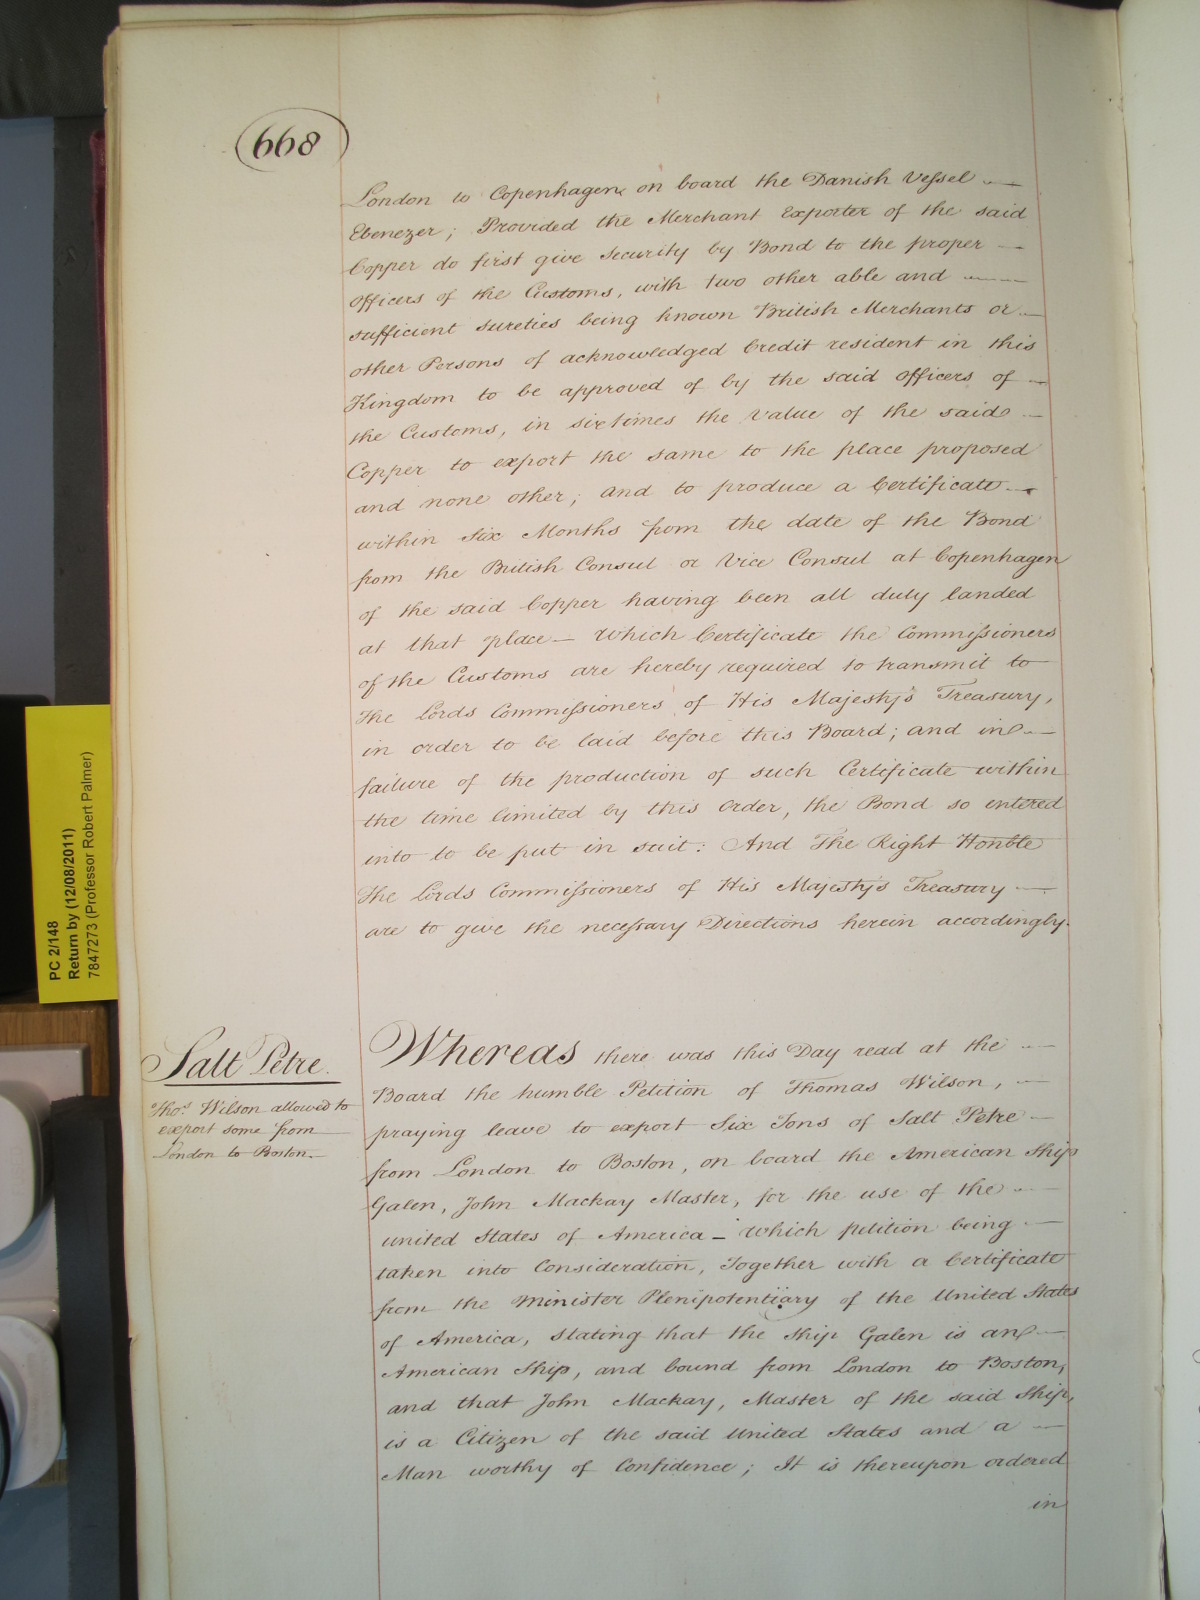 668
London to Copenhagen on board the Danish Vessel —
Ebenezer; Provided the Merchant Exporter of the said
Copper do first give Security by Bond to the proper —
Officers of the Customs, with two other able and —
sufficient sureties being known British Merchants or —
other Persons of acknowledged Credit resident in this
Kingdom to be approved of by the said Officers of —
the Customs, in six times the Value of the said —
Copper to export the same to the place proposed
and none other; and to produce a Certificate —
within Six Months from the date of the Bond
from the British Consul or Vice Consul at Copenhagen
of the said Copper having been all duly landed
at that place — Which Certificate the Commissioners
of the Customs are hereby required to transmit to
The Lords Commissioners of His Majesty's Treasury,
in order to be laid before this Board; and in —
failure of the production of such Certificate within
the time limited by this Order, the Bond so entered
into to be put in suit: And The Right Honble
The Lords Commissioners of His Majesty's Treasury —
are to give the necessary Directions herein accordingly.
Salt Petre.
Thos. Wilson allowed to
export some from
London to Boston. —
Whereas there was this Day read at the —
Board the humble Petition of Thomas Wilson, —
praying leave to export Six Tons of Salt Petre —
from London to Boston, on board the American Ship
Galen, John Mackay Master, for the use of the —
United States of America — Which petition being —
taken into Consideration, Together with a Certificate
from the Minister Plenipotentiary of the United States
of America, stating that the Ship Galen is an —
American Ship, and bound from London to Boston,
and that John Mackay, Master of the said Ship,
is a Citizen of the said United States and a —
Man worthy of Confidence; It is thereupon ordered
in
PC 2/148
Return by (12/08/2011)
7847273 (Professor Robert Palmer)